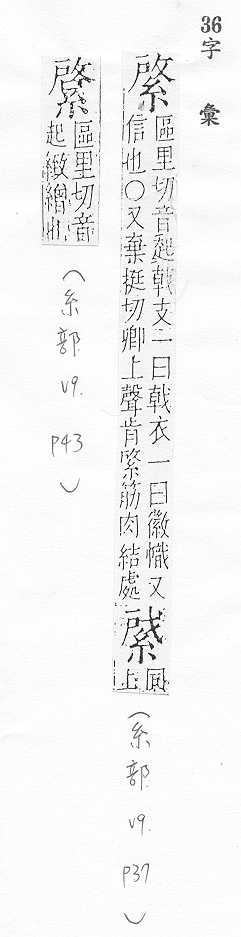 36字 彙
綮
區里切音起戟支一曰戟衣一曰徽幟又
信也○又棄挺切卿上聲肯綮筋肉結處
同
上
(糸部 V9. P37)
綮
區里切音
起緻繒也
(糸部 V9. P43)